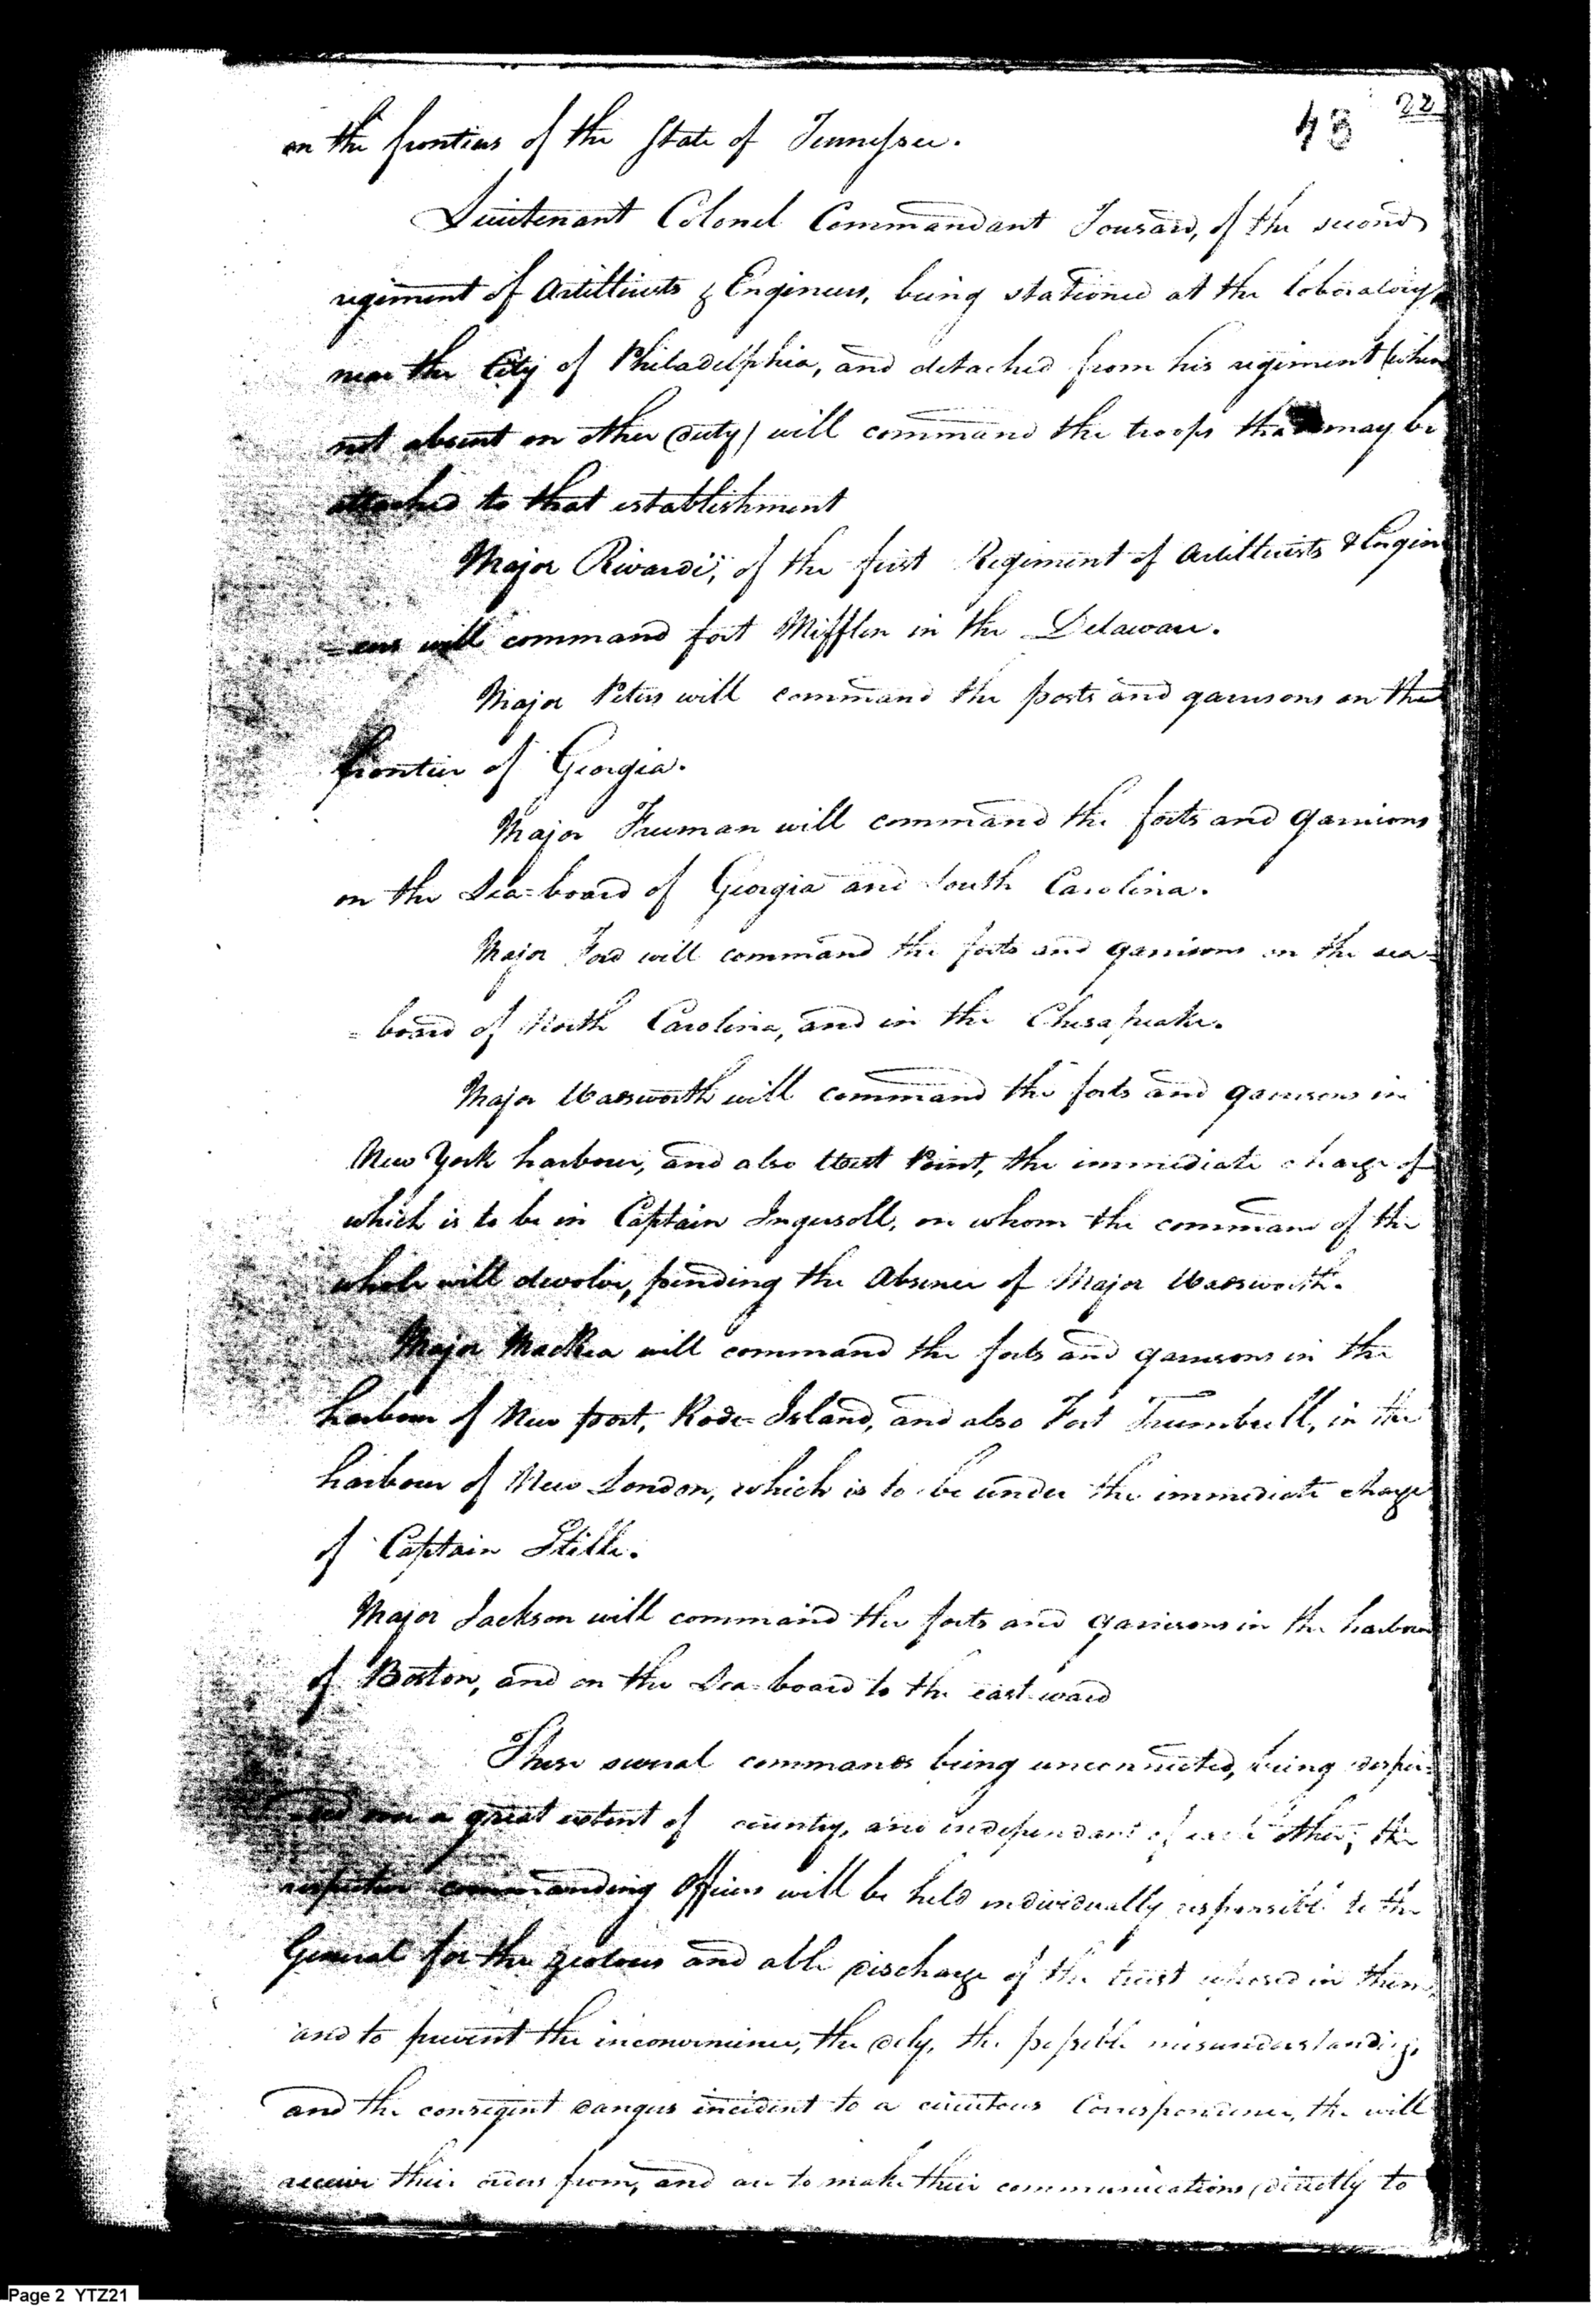 22
43
on the frontiers of the State of Tennessee.
Lieutenant Colonel Commandant Tousard, of the second
regiment of Artillerists & Engineers, being stationed at the laboratory
near the City of Philadelphia, and detached from his regiment (when
not absent on other duty) will command the troops that may be
attached to that establishment
Major Rivardi, of the first Regiment of Artillerists & Engin
=eers will command fort Mifflen in the Delaware.
Major Peters will command the posts and garrisons on the
frontier of Georgia.
Major Freeman will command the forts and garrisons
on the Sea=board of Georgia and South Carolina.
Major Ford will command the forts and garrisons on the sea=
=board of North Carolina, and in the Chesapeake.
Major Wadsworth will command the forts and garrisons in
New York harbour, and also West Point, the immediate charge of
which is to be in Captain Ingersoll, on whom the command of the
whole will devolve, pending the Absence of Major Wadsworth.
Major MacRea will command the forts and garrisons in the
harbour of New port, Rode=Island, and also Fort Trumbull, in the
harbour of New London, which is to be under the immediate charge
of Captain Stille.
Major Jackson will command the forts and garrisons in the harbour
of Boston, and on the Sea=board to the east ward
These several commands being unconnected, being disper=
=sed over a great extent of country, and independant of each other, the
respective commanding Officers will be held individually responsible to the
General for the zealous and able discharge of the trust reposed in them,
and to prevent the inconvenience, the dely, the possible misunderstanding,
and the conseqent dangers incident to a circuitous Correspondence, the will
receive their orders from, and are to make their communications directly to
Page 2 YTZ21